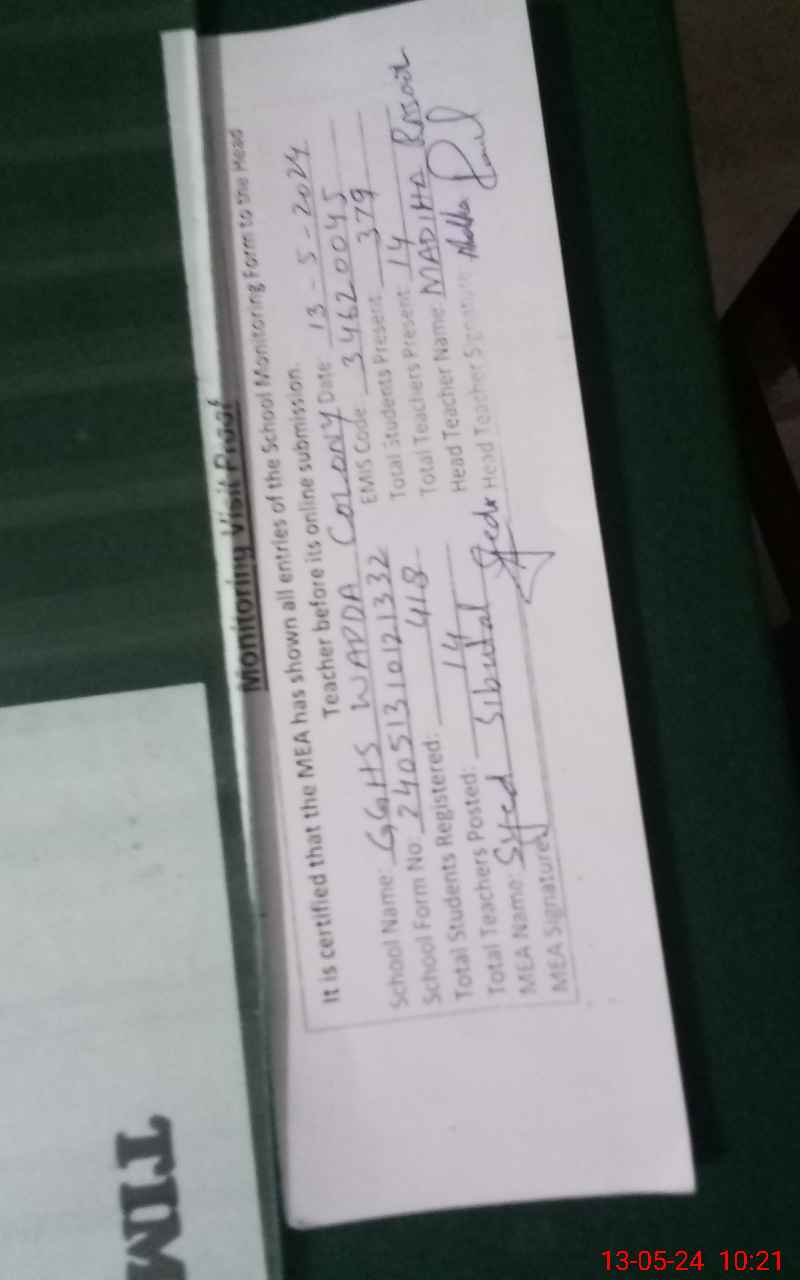 Monitoring Visit Proof
It is certified that the MEA has shown all entries of the School Monitoring Form to the Head
Teacher before its online submission.
School Name: GGHS WAPDA COLONY Date: 13-5-2024
School Form No: 24051310121332 EMIS Code: 34620045
Total Students Registered: 418 Total Students Present: 379
Total Teachers Posted: 14 Total Teachers Present: 14
MEA Name: Syed Sibutal Head Teacher Name: MADIHA
MEA Signature: Head Teacher Signature:
TIM
13-05-24 10:21